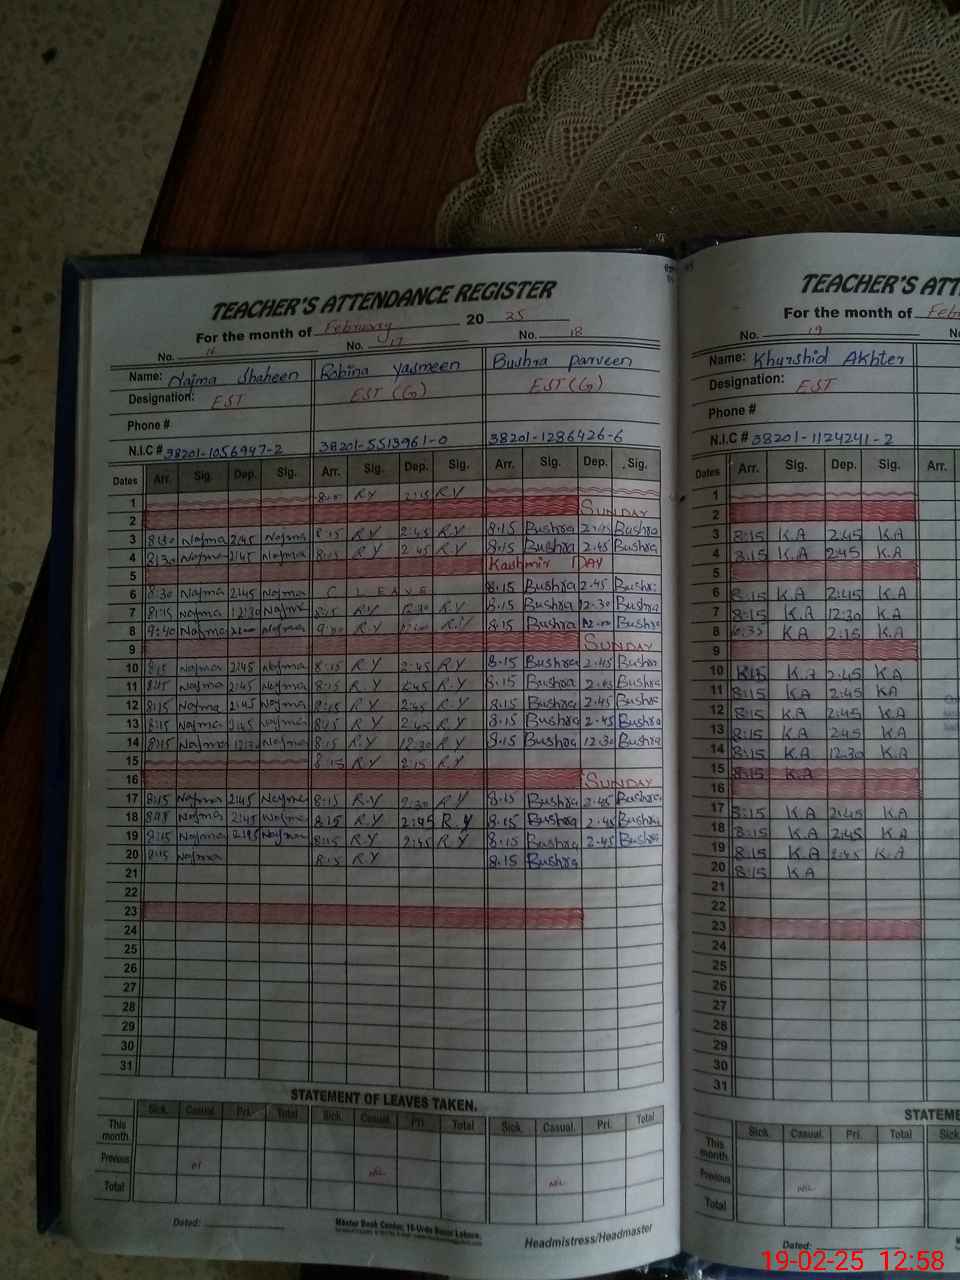 TEACHER'S ATTENDANCE REGISTER
For the month of February 20 25
No. 16 No. 17 No. 18
Name: Najma Shaheen Robina yasmeen Bushra parveen
Designation: EST EST (G) EST (G)
Phone #
N.I.C # 38201-1056947-2 38201-5513961-0 38201-1286426-6
Dates Arr. Sig. Dep. Sig. Arr. Sig. Dep. Sig. Arr. Sig. Dep. Sig.
1 R.Y 2:15 R.Y
2 SUNDAY
3 8:30 Najma 2:45 Najma 8:15 R.Y 2:45 R.Y 8:15 Bushra 2:45 Bushra
4 8:30 Najma 2:45 Najma R.Y 2:45 R.Y 8:15 Bushra 2.45 Bushra
5 Kashmir DAY
6 8:30 Najma 2:45 Najma C LEAVE 8.15 Bushra 2.45
7 8:15 Najma 12:30 Najma 8:15 R.Y 12:30 R.Y 8.15 Bushra 12.30 Bushra
8 9:40 Najma Najma R.Y R.Y 8:15 Bushra Bushra
9 SUNDAY
10 8:15 Najma 2:45 Najma 8:15 R.Y 2:45 R.Y 8.15 Bushra 2.45 Bushra
11 8:15 Najma 2:45 Najma 8:15 R.Y 2:45 R.Y 8.15 Bushra 2.45 Bushra
12 8:15 Najma 2:45 Najma 8:15 R.Y 2:45 R.Y 8.15 Bushra 2.45 Bushra
13 8:15 Najma 2:45 Najma 8:15 R.Y 2:45 R.Y 8.15 Bushra 2.45 Bushra
14 8:15 Najma 12:30 Najma 8:15 R.Y 12:30 R.Y 8.15 Bushra 12.30 Bushra
15 8:15 R.Y 2:15 R.Y
16 SUNDAY
17 8:15 Najma 2:45 Najma 8:15 R.Y 2:30 R.Y 8.15 Bushra 2.45 Bushra
18 Najma 2:45 Najma 8:15 R.Y 2:45 R.Y 8.15 Bushra 2.45 Bushra
19 8:15 Najma Najma 8:15 R.Y 2:45 R.Y 8.15 Bushra 2.45 Bushra
20 8:15 Najma 8:15 R.Y 8.15 Bushra
21
22
23
24
25
26
27
28
29
30
31
STATEMENT OF LEAVES TAKEN.
Sick. Casual. Pri. Total Sick. Casual. Pri. Total Sick. Casual. Pri. Total
This month
Previous NIL NIL
Total
Dated:
Master Book Center, 16-Urdu Bazar Lahore.
Headmistress/Headmaster
TEACHER'S ATT
For the month of Feb
No. 19
Name: Khurshid Akhter
Designation: EST
Phone #
N.I.C # 38201-1124241-2
Dates Arr. Sig. Dep. Sig. Arr.
1
2
3 8:15 K.A 2:45 K.A
4 8.15 K.A 2:45 K.A
5
6 8:15 K.A 2:45 K.A
7 8:15 K.A 12:30 K.A
8 KA 2:15 K.A
9
10 8:15 K.A 2:45 K.A
11 8:15 KA 2:45 KA
12 8:15 K.A 2:45 K.A
13 8:15 K.A 2:45 K.A
14 8:15 K.A 12:30 K.A
15 8:15 K.A
16
17 8:15 K.A 2:45 K.A
18 8:15 K.A 2:45 K.A
19 8:15 K.A 2:45 K.A
20 8:15 K.A
21
22
23
24
25
26
27
28
29
30
31
STATEME
Sick. Casual. Pri. Total Sick
This month
Previous NIL
Total
Dated:
19-02-25 12:58